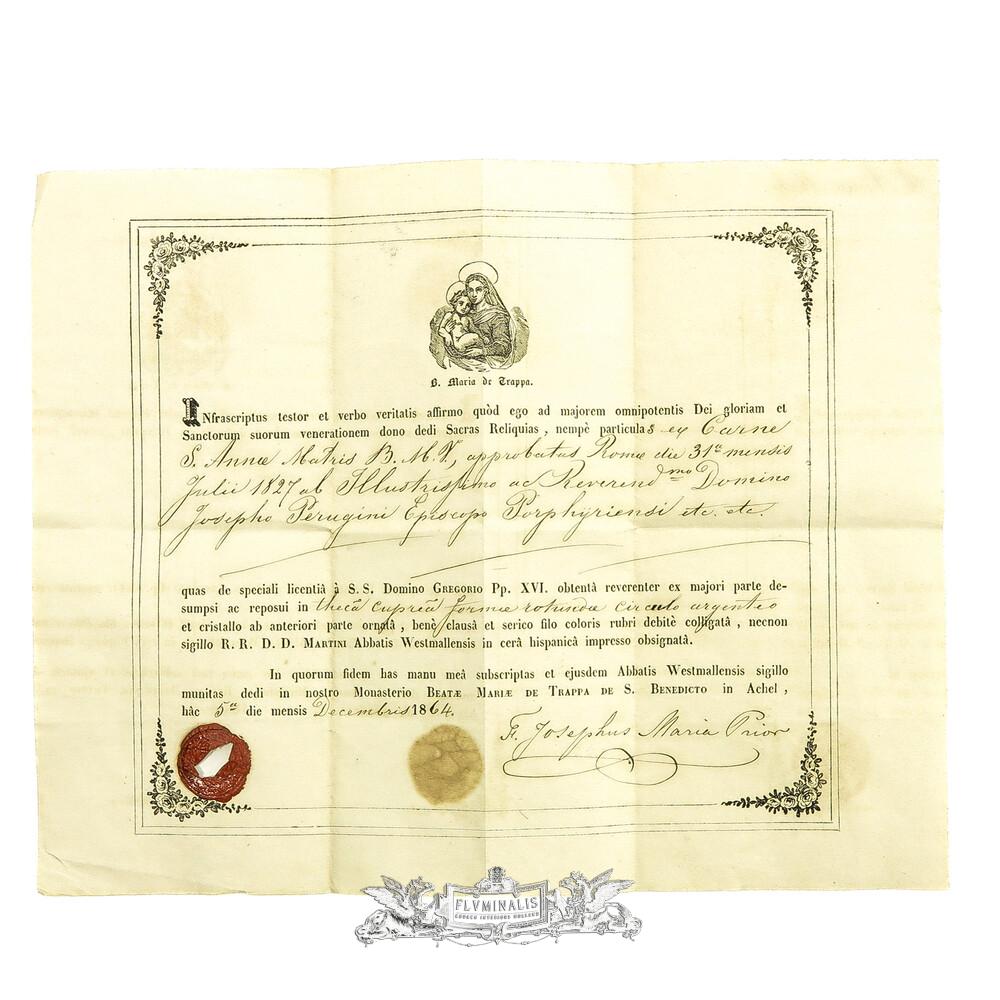 B. Maria de Trappa.
INfrascriptus testor et verbo veritatis affirmo quòd ego ad majorem omnipotentis Dei gloriam et
Sanctorum suorum venerationem dono dedi Sacras Reliquias, nempè particulas ex Carne
S. Annæ Matris B. M. V., approbatas Romæ die 31ª mensis
Julii 1827 ab Illustrissimo ac Reverendmo Domino
Josepho Perugini Episcopo Porphyriensi etc. etc.
quas de speciali licentiâ à S. S. Domino GREGORIO Pp. XVI. obtentâ reverenter ex majori parte de-
sumpsi ac reposui in thecâ cupreâ formæ rotundæ circulo argenteo
et cristallo ab anteriori parte ornatâ, benè clausâ et serico filo coloris rubri debitè colligatâ, necnon
sigillo R. R. D. D. MARTINI Abbatis Westmallensis in cerâ hispanicâ impresso obsignatâ.
In quorum fidem has manu meâ subscriptas et ejusdem Abbatis Westmallensis sigillo
munitas dedi in nostro Monasterio BEATÆ MARIÆ DE TRAPPA DE S. BENEDICTO in Achel,
hâc 5ª die mensis Decembris 1864.
F. Josephus Maria Prior
FLVMINALIS
CHURCH INTERIORS HOLLAND